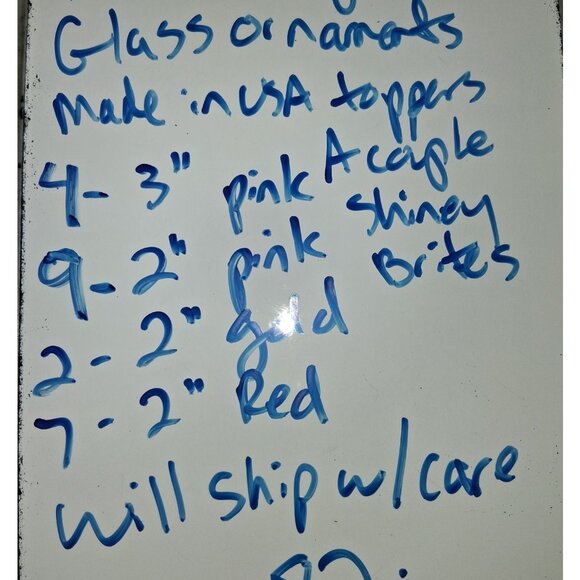 Glass ornaments
made in USA toppers
4 - 3" pink A couple
9 - 2" pink Shiney
2 - 2" gold Brites
7 - 2" Red
will ship w/care